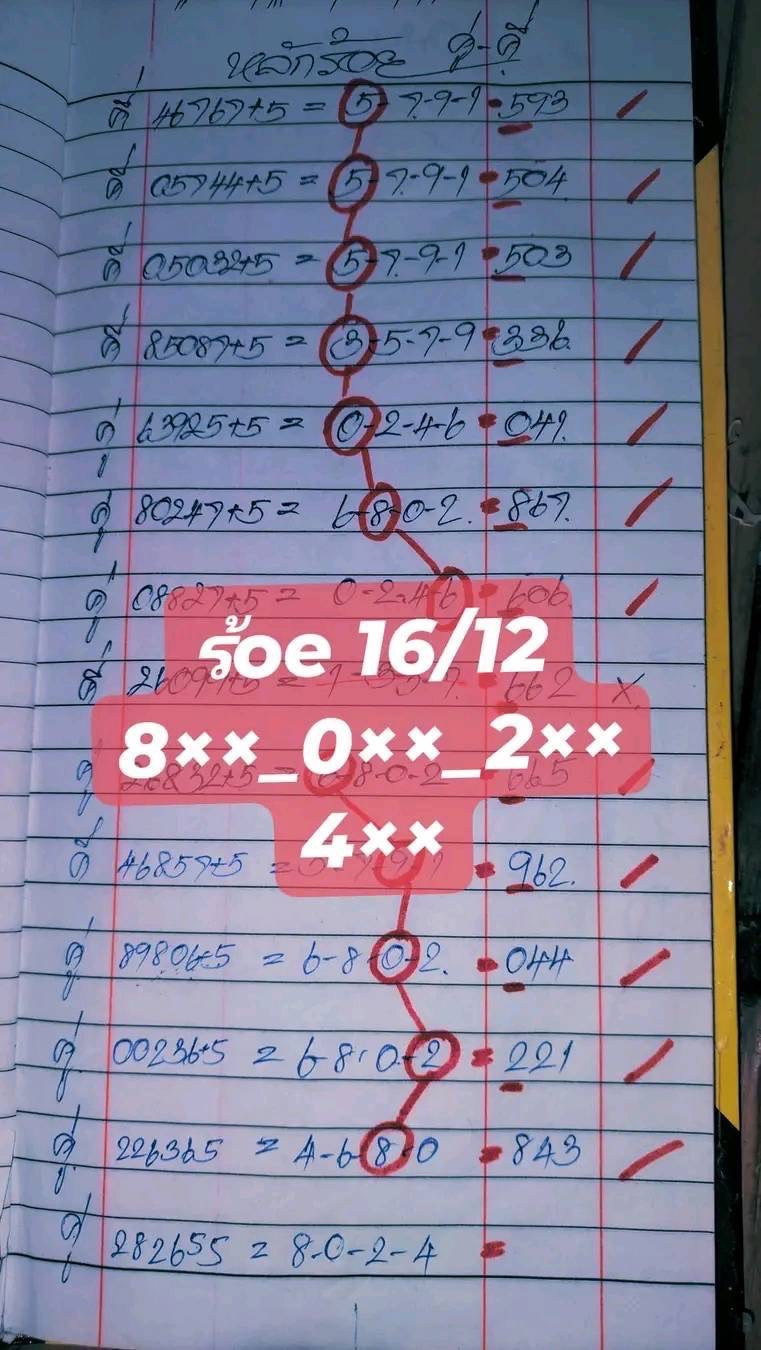 หลักร้อย คู่-คี่
คี่ 46767+5 = 5-7-9-1 593
คี่ 05744+5 = 5-7-9-1 504
คี่ 05032+5 = 5-7-9-1 503
คี่ 85087+5 = 3-5-7-9 336
คู่ 63925+5 = 0-2-4-6 041
คู่ 80247+5 = 6-8-0-2 867
คู่ 08827+5 = 0-2-4-6 606
ร้oe 16/12
คี่ 662 X
8××_0××_2××
คู่ 26832+5 = 6-8-0-2 665
4××
คี่ 46857+5 = 962
คู่ 89806+5 = 6-8-0-2 = 044
คู่ 00236+5 = 6-8-0-2 = 221
คู่ 226365 = 4-6-8-0 = 843
คู่ 282655 = 8-0-2-4 =